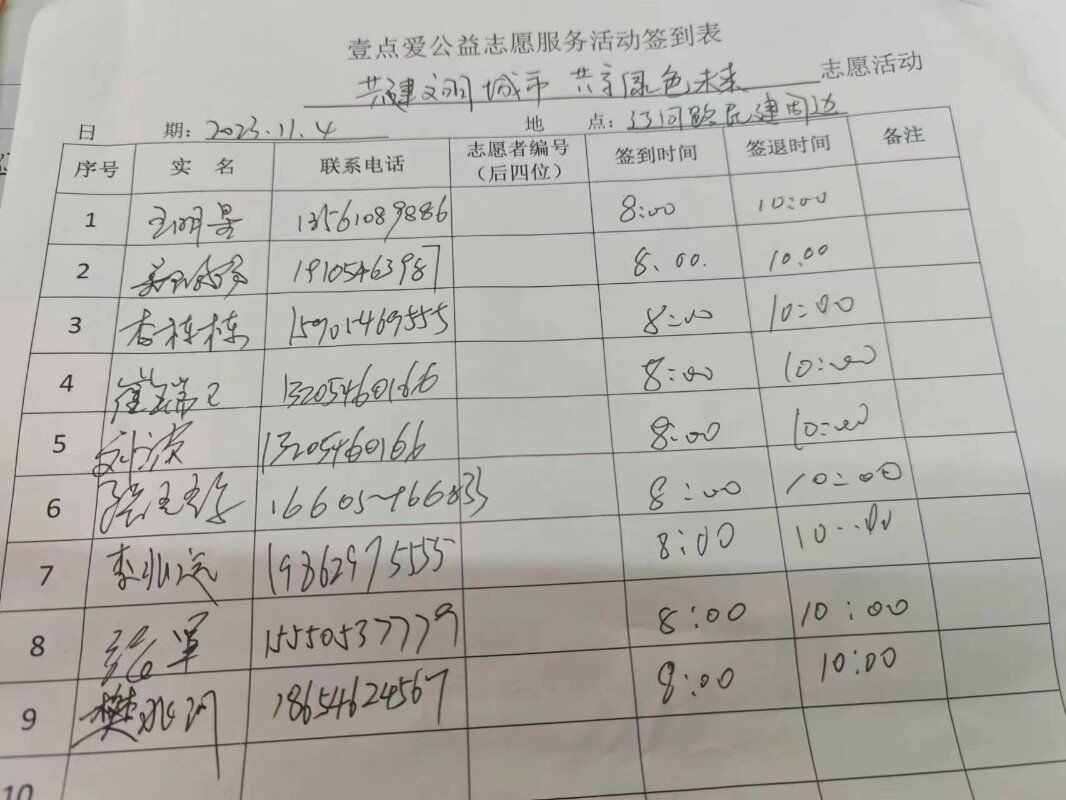 壹点爱公益志愿服务活动签到表
共建文明城市 共享绿色未来 志愿活动
日 期：2023.11.4 地 点：辽河路民建周边
序号 实 名 联系电话 志愿者编号（后四位） 签到时间 签退时间 备注
1 王明星 13561089886 8:00 10:00
2 19105463987 8.00. 10.00
3 李栋栋 15901469555 8:00 10:00
4 崔瑞 13205460166 8:00 10:00
5 刘滨 13205460166 8:00 10:00
6 张 8:00 10:00
7 李 19862975555 8:00 10:00
8 张军 15550537779 8:00 10:00
9 樊 18654624567 8:00 10:00
10